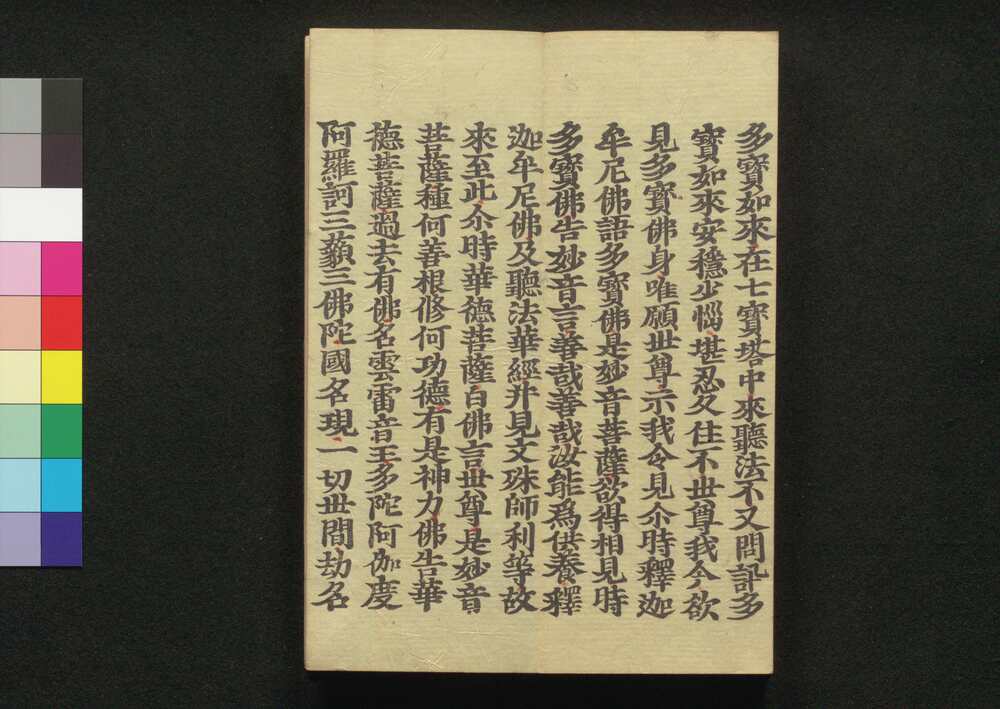 多寶如來在七寶塔中來聽法不又問訊多
寶如來安穩少惱堪忍久住不世尊我今欲
見多寶佛身唯願世尊示我令見尒時釋迦
牟尼佛語多寶佛是妙音菩薩欲得相見時
多寶佛告妙音言善哉善哉汝能為供養釋
迦牟尼佛及聽法華經并見文殊師利等故
來至此尒時華德菩薩白佛言世尊是妙音
菩薩種何善根修何功德有是神力佛告華
德菩薩過去有佛名雲雷音王多陀阿伽度
阿羅訶三藐三佛陀國名現一切世間劫名